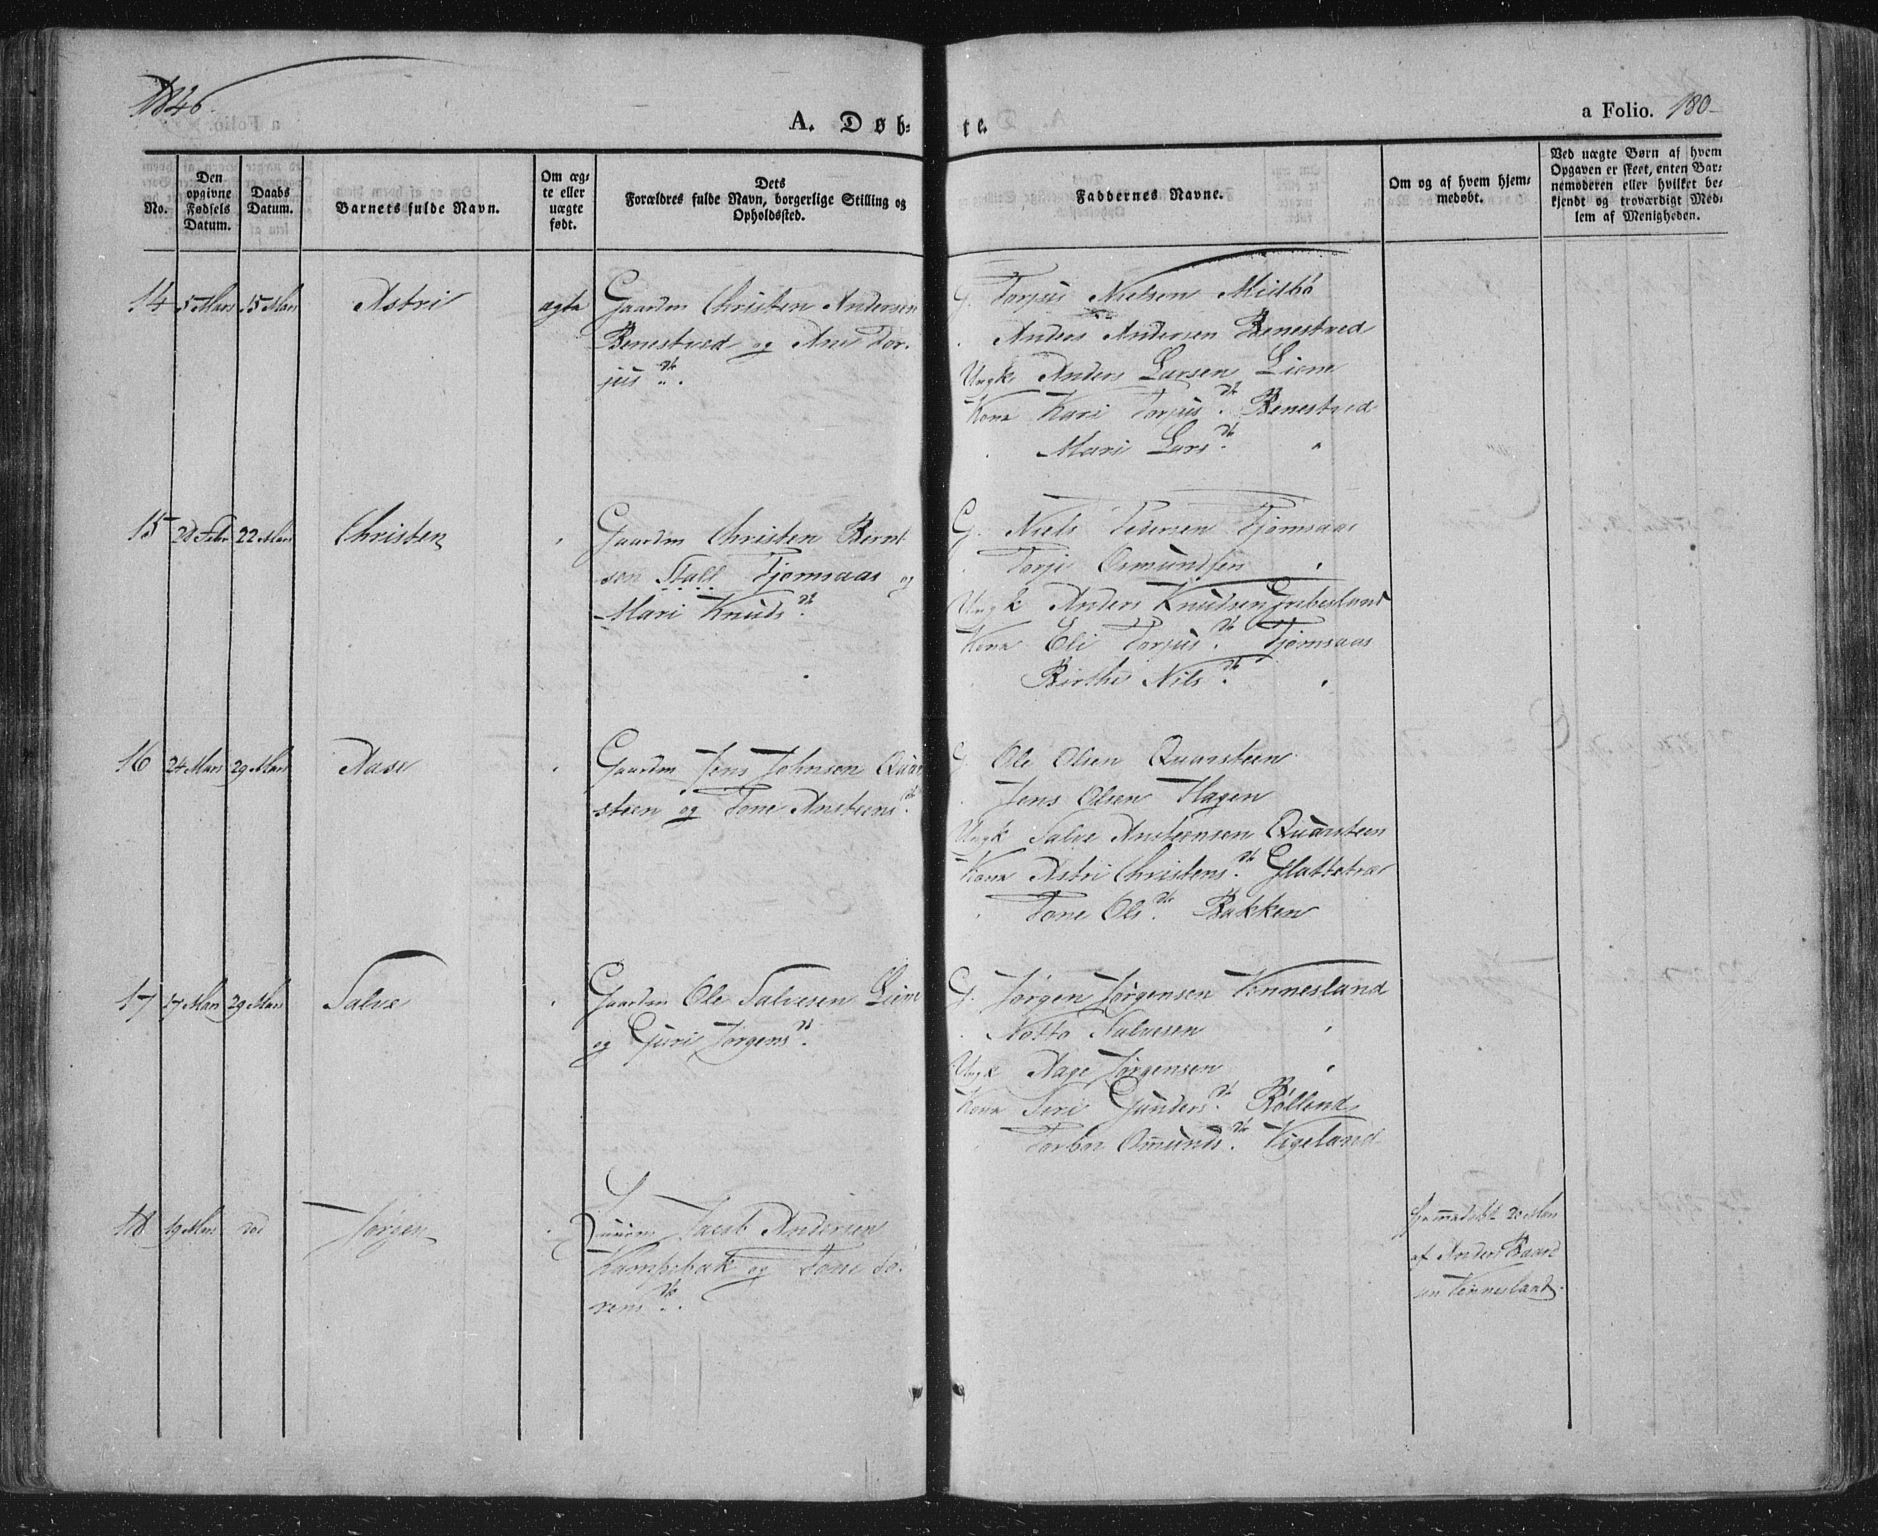 1846.
A. Døb-
te.
a Folio. 180-
No.
Den opgivne Fødsels Datum.
Daabs Datum.
Barnets fulde Navn.
Om ægte eller uægte født.
Dets
Forældres fulde Navn, borgerlige Stilling og Opholdssted.
Faddernes Navne.
Om og af hvem hjemmedøbt.
Ved uægte Børn af hvem Opgaven er skeet, enten Barnemoderen eller hvilket bekjendt og troværdigt Medlem af Menigheden.
14 5 Mars 15 Mars Astri ægte Gaardm Christen Andersen
Benestved og Ane Tor-
jus Dtr.
G. Torjus Nielsen
. Anders Andersen Benestved
Ungk Anders Larsen Liene
Kona Kari Torjus Dtr. Benestved
. Mari Lars Dtr. "
15 28 Febr 22 Mars Christen " Gaardm Christen Bernt
sen Stall Tjomsaas og
Mari Knuds Dtr.
G. Niels Pedersen Tjomsaas
. Torje Osmundsen "
Ungk Anders Knudsen Gribesland
Kona Eli Torjus Dtr. Tjomsaas
" Birthe Nils Dtr. "
16 24 Mars 29 Mars Aase " Gaardm Jens Johnsen Quar
steen og Tone Ansteens Dtr.
G. Ole Olsen Quarsteen
. Jens Olsen Hagen
Ungk Salve Ansteensen Quarsteen
Kona Astri Christens Dtr. Glattetræ
" Tone Ols Dtr. Bakken
17 17 Mars 29 Mars Salve " Gaardm Ole Salvesen Leim
og Guri Jørgens Dtr.
G. Jørgen Jørgensen Kinnesland
. Notto Salvesen "
Ungk Aage Jørgensen "
Kona Siri Gunders Dtr. Røllend
" Torbor Omunds Dtr. Vigeland
18 19 Mars Jørgen " Jacob Andersen
Kampebak og Tone Sø-
rens Dtr.
hjemmedøbt 20 Mars
af Anders Baard
sen Kinnesland.